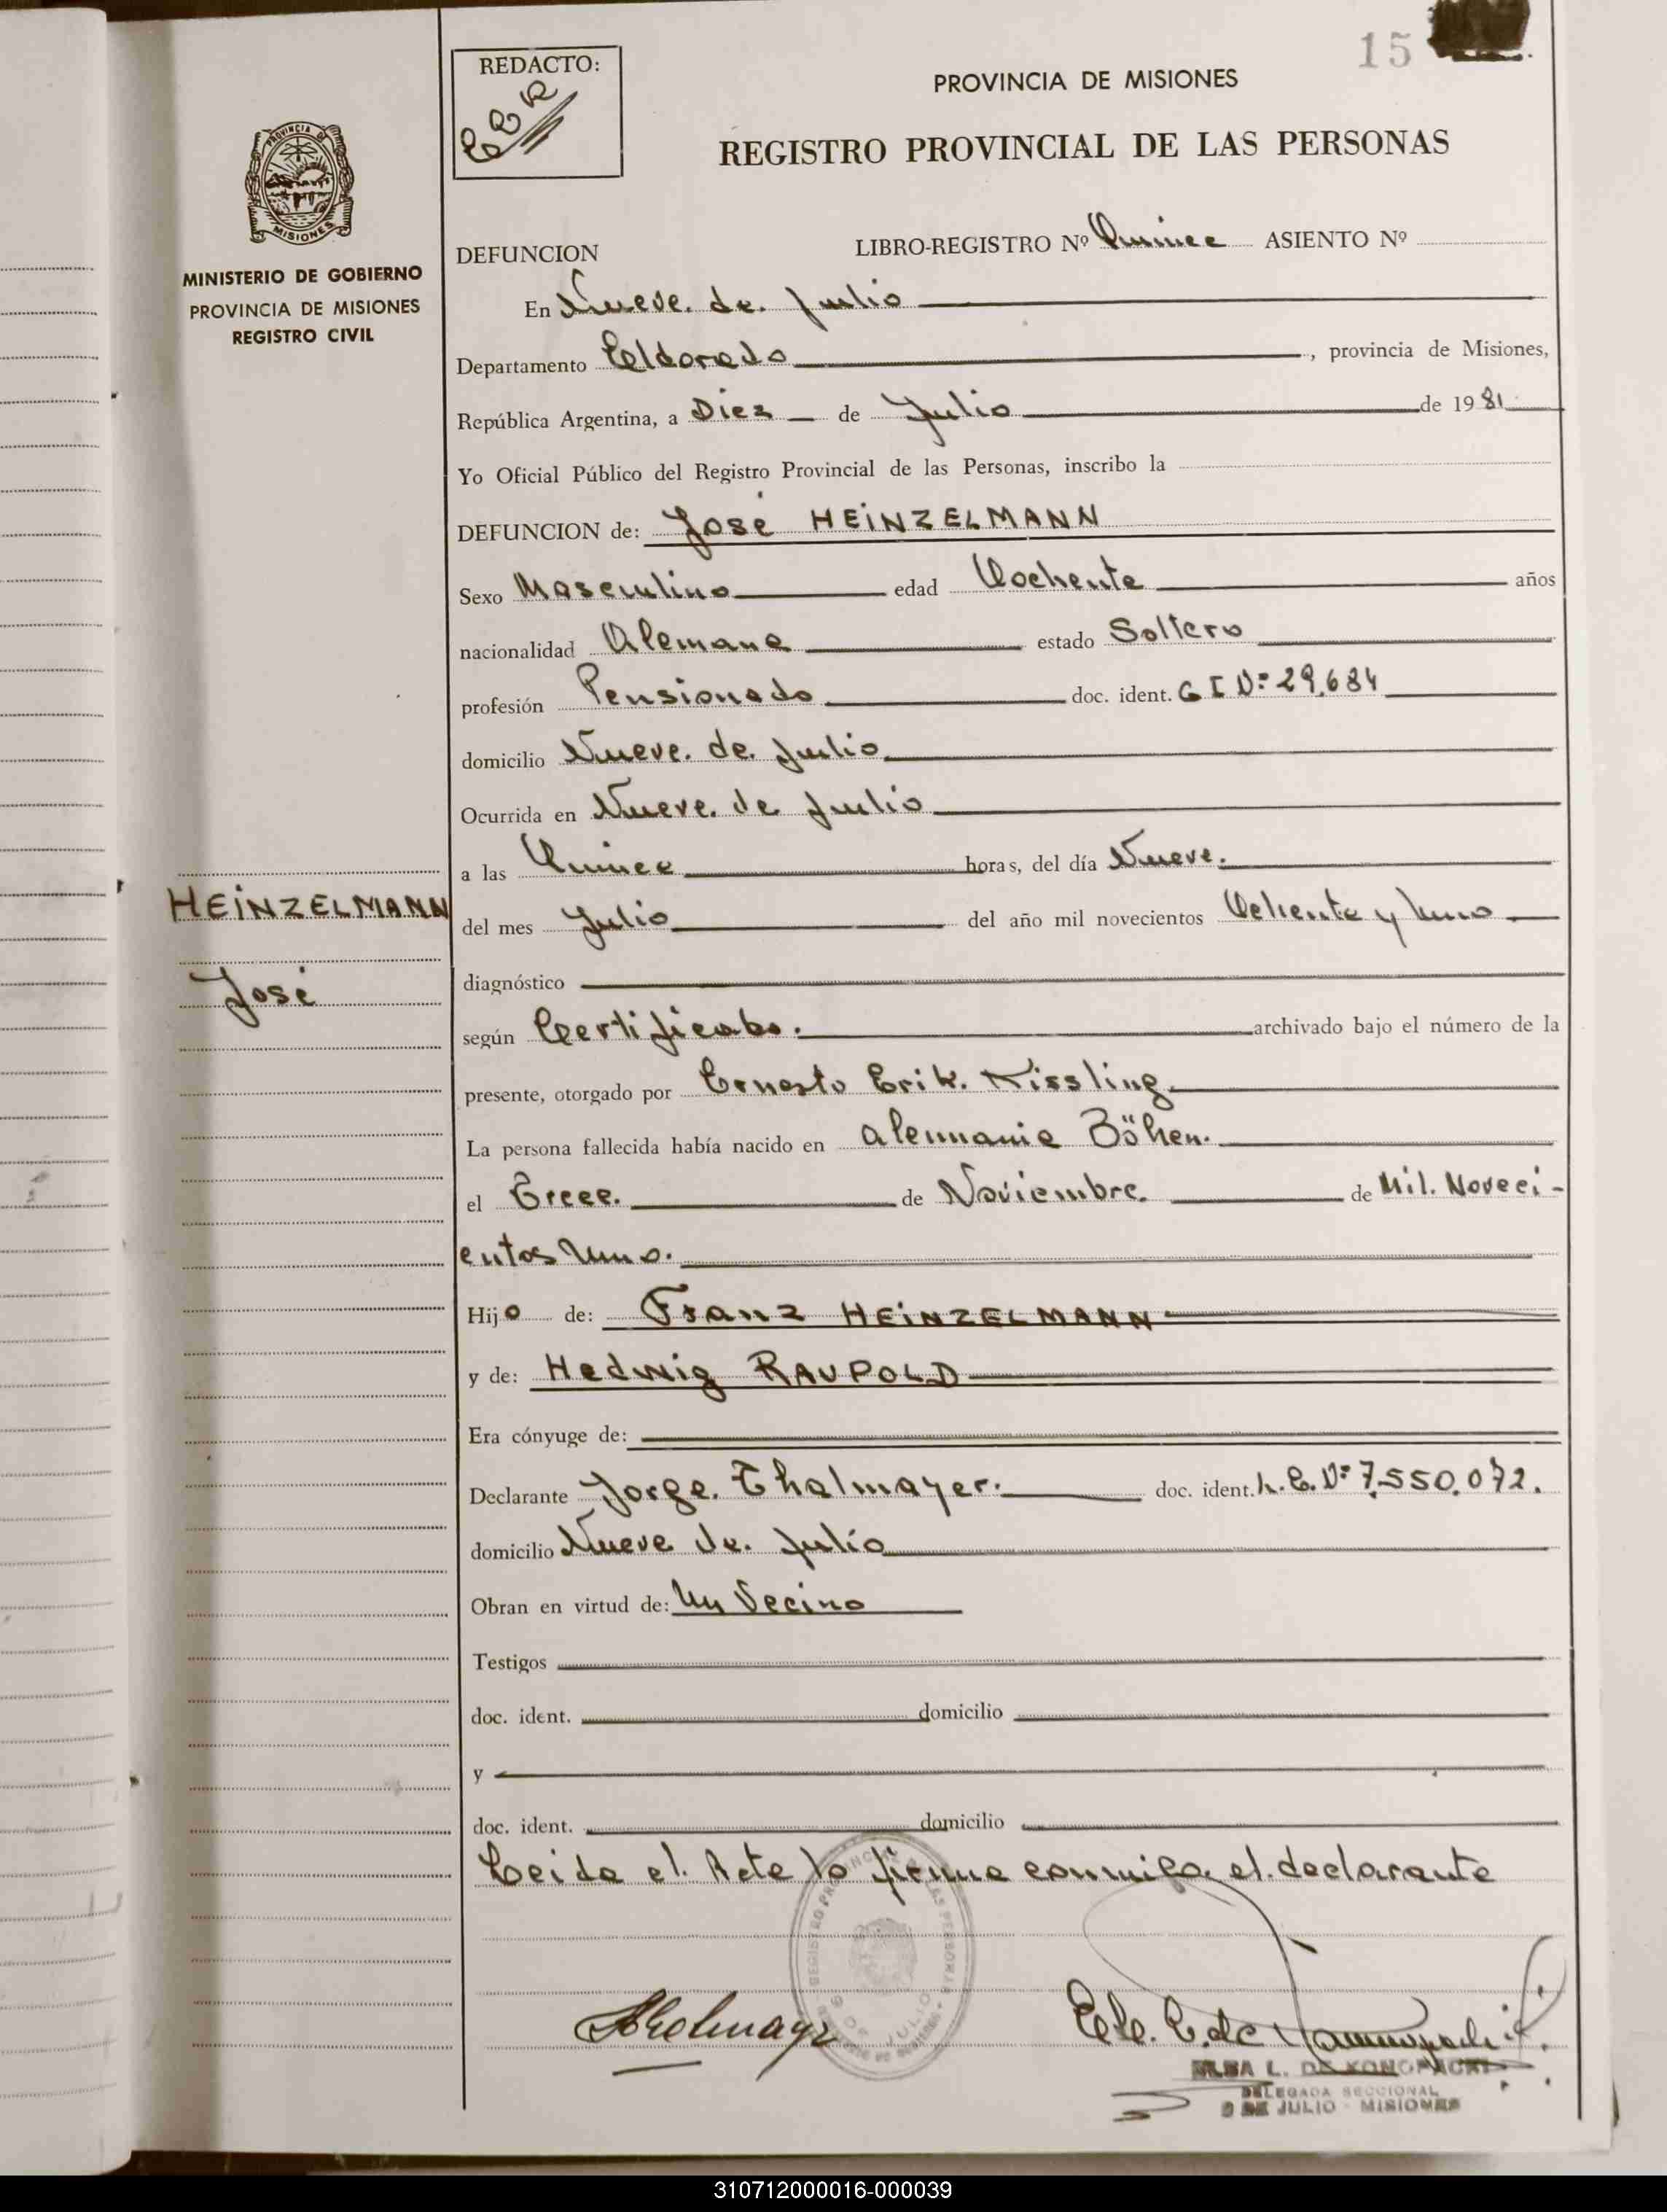 15
REDACTO:
PROVINCIA DE MISIONES
REGISTRO PROVINCIAL DE LAS PERSONAS
PROVINCIA DE
MISIONES
MINISTERIO DE GOBIERNO
PROVINCIA DE MISIONES
REGISTRO CIVIL
DEFUNCION LIBRO-REGISTRO Nº Quince ASIENTO Nº
En Nueve. de. Julio
Departamento Eldorado, provincia de Misiones,
República Argentina, a Diez de Julio de 1981
Yo Oficial Público del Registro Provincial de las Personas, inscribo la
DEFUNCION de: José HEINZELMANN
Sexo Masculino edad Oochenta años
nacionalidad Alemana estado Soltero
profesión Pensionado doc. ident. C I Nº 29.684
domicilio Nueve. de. Julio
Ocurrida en Nueve. de Julio
a las Quince horas, del día Nueve.
HEINZELMANN
del mes Julio del año mil novecientos Ochenta y Uno
José
diagnóstico
según Certificado. archivado bajo el número de la
presente, otorgado por Ernesto Erik. Kissling
La persona fallecida había nacido en Alemania Böhen.
el Trece. de Noviembre. de Mil. Noveci-
entos Uno.
Hijo de: Franz HEINZELMANN
y de: Hedwig RAUPOLD
Era cónyuge de:
Declarante Jorge. Thalmayer. doc. ident. L. E. Nº 7.550.072.
domicilio Nueve de. Julio
Obran en virtud de: Un Vecino
Testigos
doc. ident. domicilio
y
doc. ident. domicilio
Leida el. Acta lo firma conmigo el. declarante
Thalmayr
ELBA L. DE KONOPACKI
DELEGADA SECCIONAL
9 DE JULIO - MISIONES
310712000016-000039